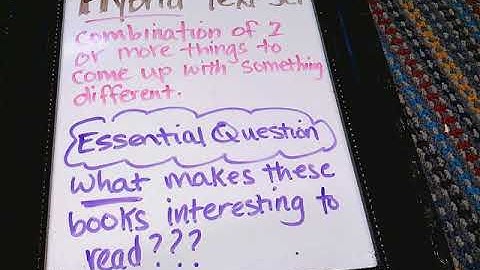 Hybrid Text Set
combination of 2
or more things to
come up with something
different.
Essential Question
What makes these
books interesting to
read???